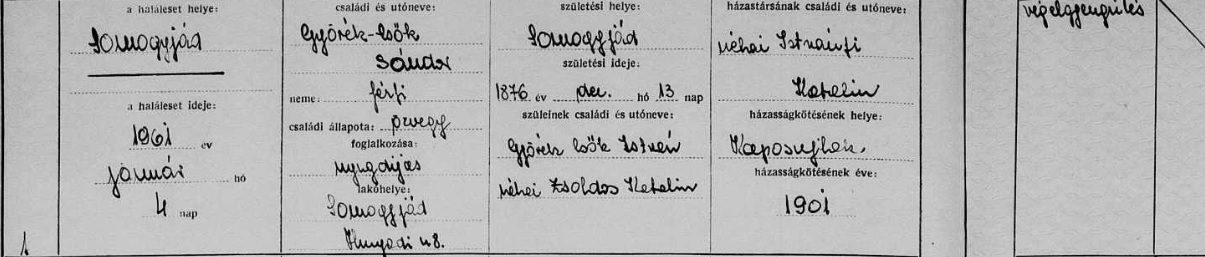 a haláleset helye:
Somogyjád
a haláleset ideje:
1961 év
január hó
4 nap
1.
családi és utóneve:
Györék-Csők
Sándor
neme: férfi
családi állapota: özvegy
foglalkozása:
nyugdíjas
lakóhelye:
Somogyjád
Hunyadi 48.
születési helye:
Somogyjád
születési ideje:
1876 év dec. hó 13 nap
szüleinek családi és utóneve:
Györék Csők István
néhai Zsoldos Katalin
házastársának családi és utóneve:
néhai Istvánfi
Katalin
házasságkötésének helye:
Kaposújlak.
házasságkötésének éve:
1901
végelgyengülés